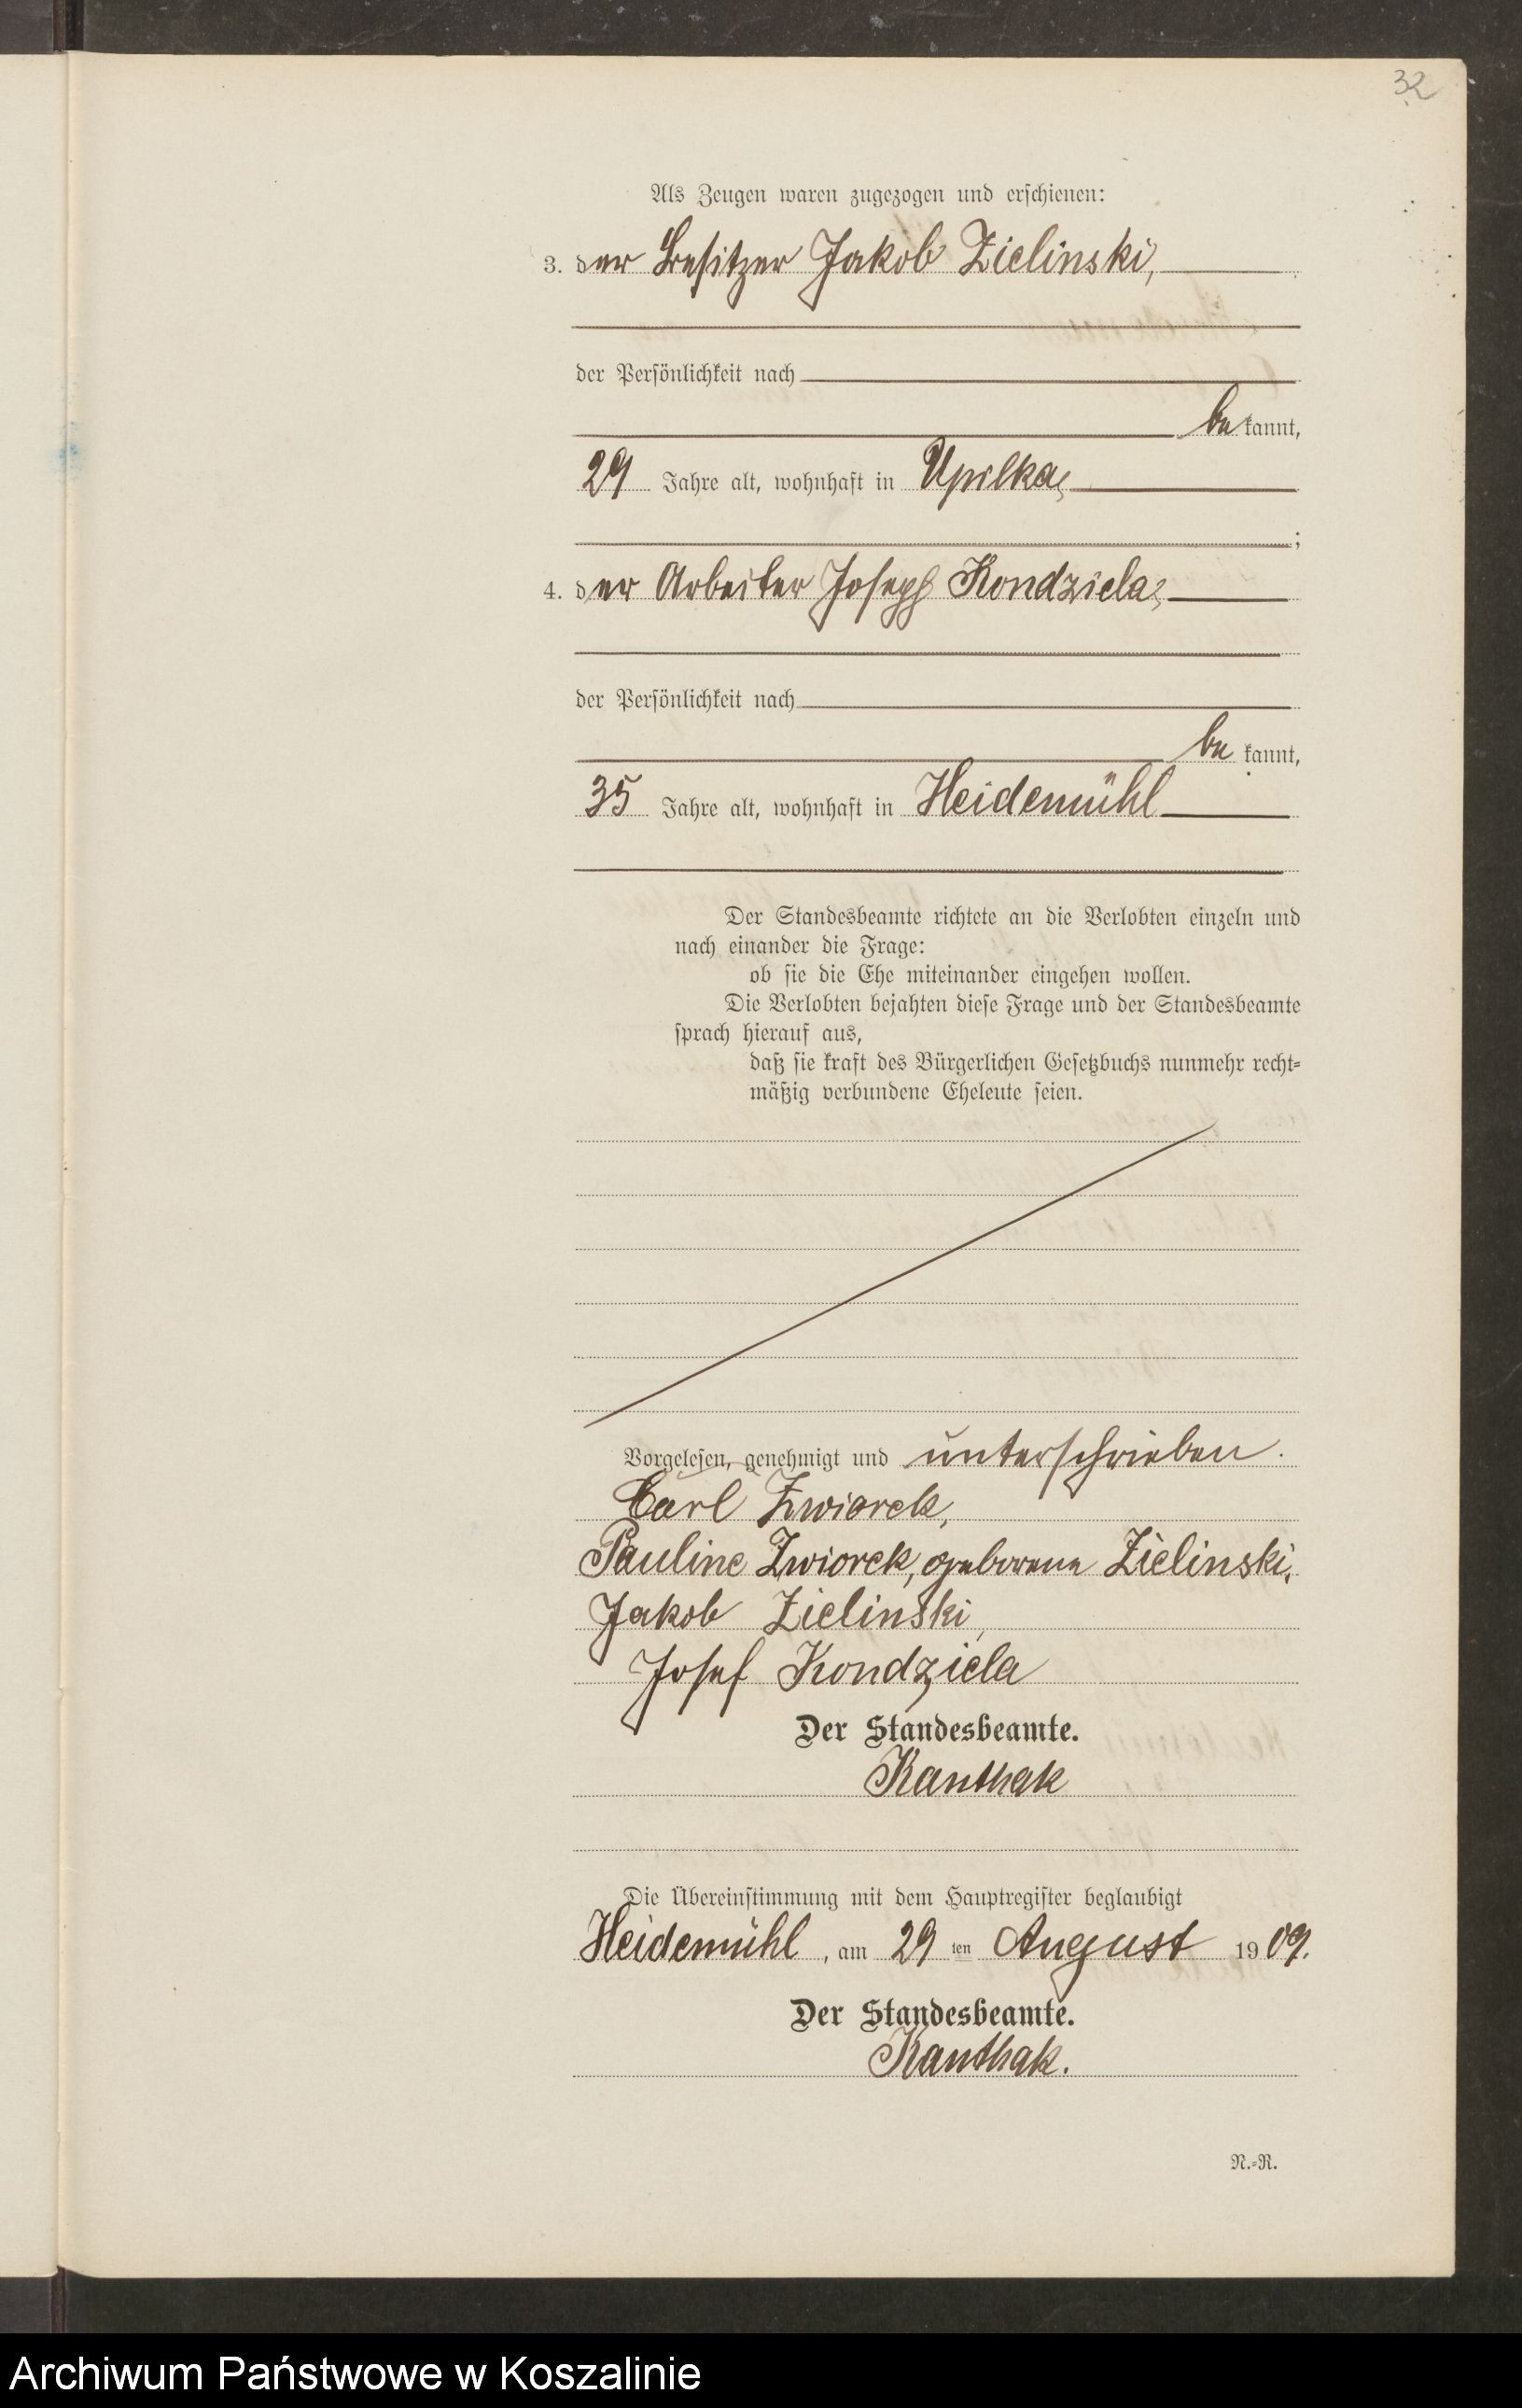 32
Als Zeugen waren zugezogen und erschienen:
3. der Besitzer Jakob Zielinski,
der Persönlichkeit nach
bekannt,
29 Jahre alt, wohnhaft in Upilka,
;
4. der Arbeiter Joseph Kondziela,
der Persönlichkeit nach
bekannt,
35 Jahre alt, wohnhaft in Heidemühl
Der Standesbeamte richtete an die Verlobten einzeln und
nach einander die Frage:
ob sie die Ehe miteinander eingehen wollen.
Die Verlobten bejahten diese Frage und der Standesbeamte
sprach hierauf aus,
daß sie kraft des Bürgerlichen Gesetzbuchs nunmehr recht-
mäßig verbundene Eheleute seien.
Vorgelesen, genehmigt und unterschrieben.
Carl Zwiorek,
Pauline Zwiorek, geborene Zielinski,
Jakob Zielinski,
Josef Kondziela
Der Standesbeamte.
Kanthak
Die Übereinstimmung mit dem Hauptregister beglaubigt
Heidemühl, am 29 ten August 1909.
Der Standesbeamte.
Kanthak.
N.-R.
Archiwum Państwowe w Koszalinie